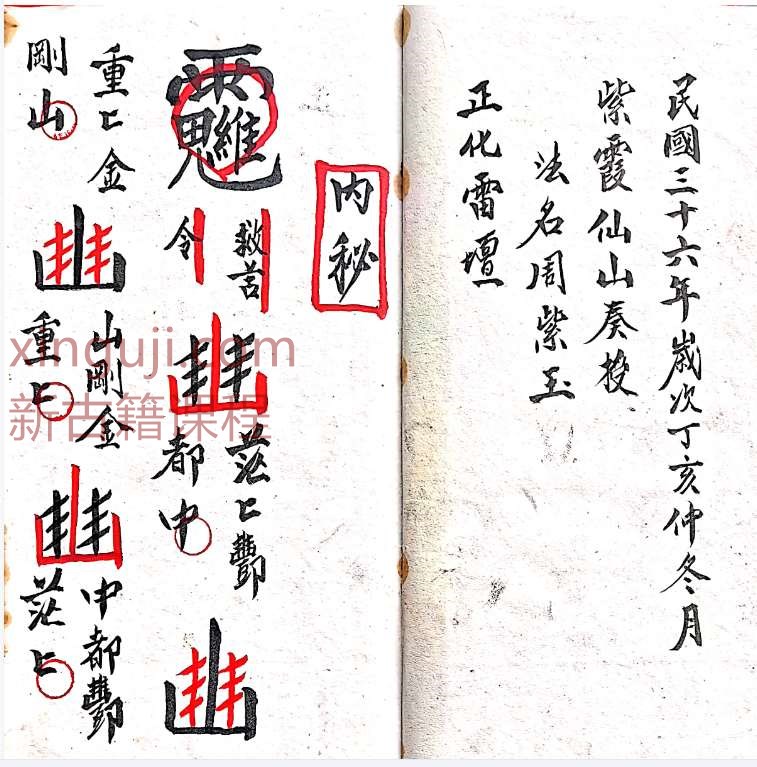 民國三十六年歲次丁亥仲冬月
紫霞仙山奏投
法名周紫玉
正化雷壇
內秘
救苦
令
茫匕酆
都中
重匕金
剛山
山剛金
重匕
中都酆
茫匕
xinguji.com
新古籍课程